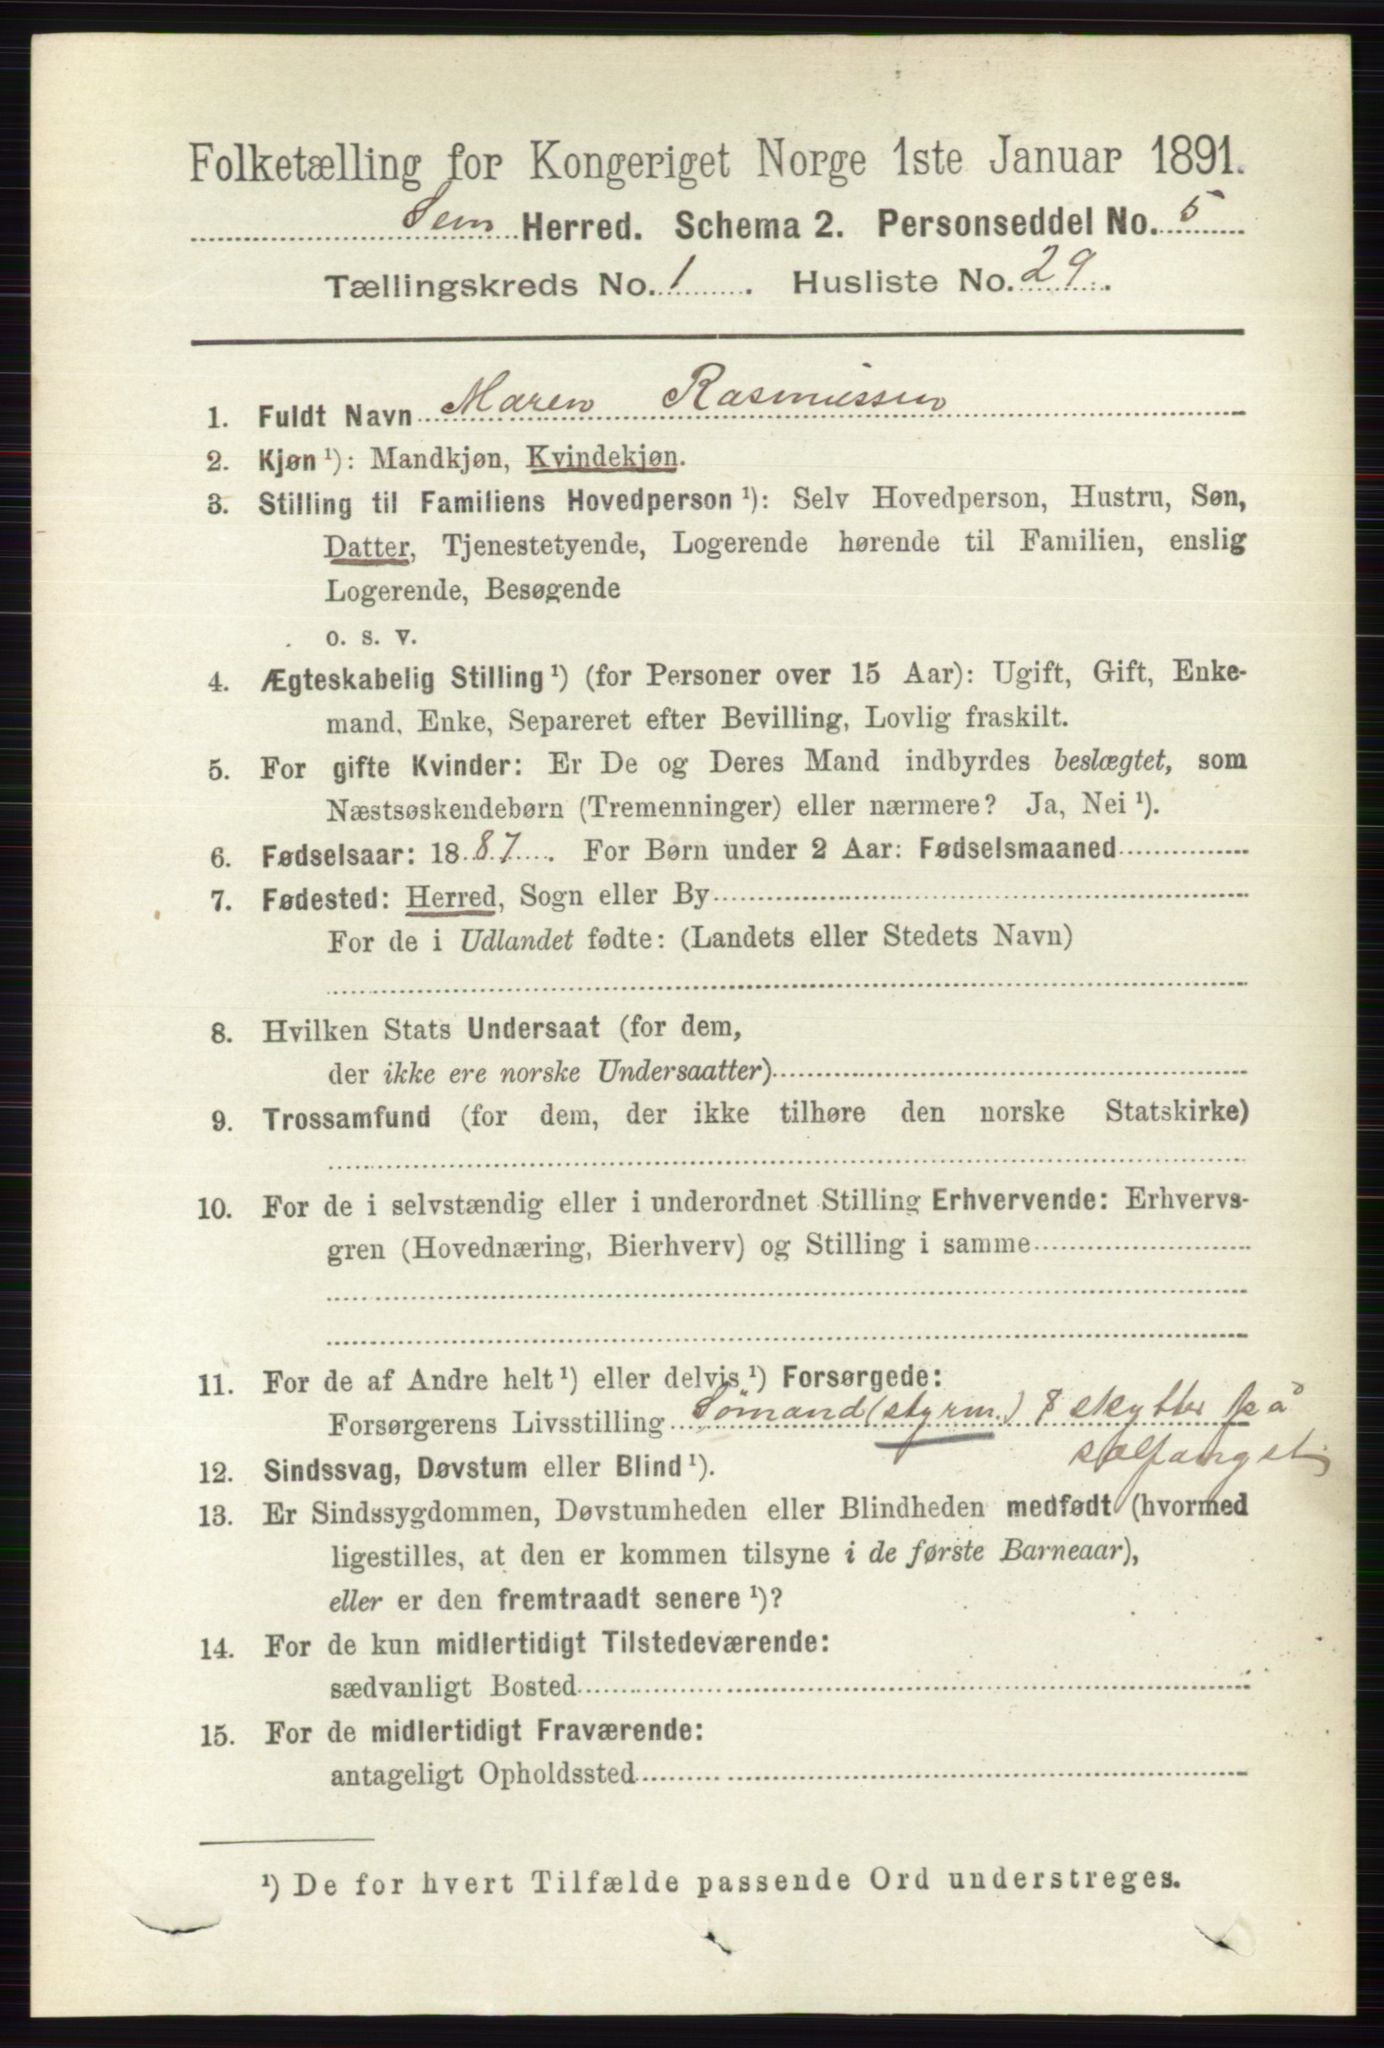 Folketælling for Kongeriget Norge 1ste Januar 1891.
Sem Herred. Schema 2. Personseddel No. 5
Tællingskreds No. 1. Husliste No. 29.
1. Fuldt Navn Maren Rasmussen
2. Kjøn ¹): Mandkjøn, Kvindekjøn.
3. Stilling til Familiens Hovedperson ¹): Selv Hovedperson, Hustru, Søn,
Datter, Tjenestetyende, Logerende hørende til Familien, enslig
Logerende, Besøgende
o. s. v.
4. Ægteskabelig Stilling ¹) (for Personer over 15 Aar): Ugift, Gift, Enke-
mand, Enke, Separeret efter Bevilling, Lovlig fraskilt.
5. For gifte Kvinder: Er De og Deres Mand indbyrdes beslægtet, som
Næstsøskendebørn (Tremenninger) eller nærmere? Ja, Nei ¹).
6. Fødselsaar: 1887. For Børn under 2 Aar: Fødselsmaaned
7. Fødested: Herred, Sogn eller By
For de i Udlandet fødte: (Landets eller Stedets Navn)
8. Hvilken Stats Undersaat (for dem,
der ikke ere norske Undersaatter)
9. Trossamfund (for dem, der ikke tilhøre den norske Statskirke)
10. For de i selvstændig eller i underordnet Stilling Erhvervende: Erhvervs-
gren (Hovednæring, Bierhverv) og Stilling i samme
11. For de af Andre helt ¹) eller delvis ¹) Forsørgede:
Forsørgerens Livsstilling Sömand (styrm.) & skytter på
sælfangst
12. Sindssvag, Døvstum eller Blind ¹).
13. Er Sindssygdommen, Døvstumheden eller Blindheden medfødt (hvormed
ligestilles, at den er kommen tilsyne i de første Barneaar),
eller er den fremtraadt senere ¹)?
14. For de kun midlertidigt Tilstedeværende:
sædvanligt Bosted
15. For de midlertidigt Fraværende:
antageligt Opholdssted
¹) De for hvert Tilfælde passende Ord understreges.